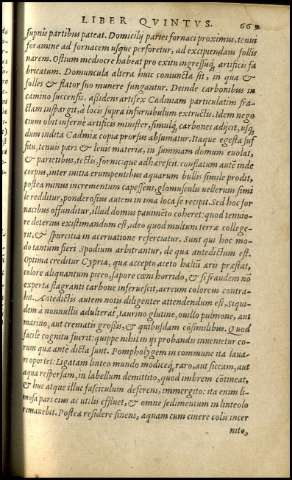 LIBER QVINTVS.
supnis partibus pateat. Domicilij paries fornaci proximus, tenui
foramine ad fornacem usque perforetur, ad excipiendam follis
narem. Ostium mediocre habeat pro exitu ingressuq; artificis fa
bricatum. Domuncula altera huic coniuncta sit, in qua &
folles & flator suo munere fungantur. Deinde carbonibus in
camino succensis, assidens artifex Cadmiam particulatim fra-
ctam inspergit, à locis supra infurnibulum extructis. Idem nego
tium obit inferne artificis minister, simulq; carbones adijcit, usq;
dum indita Cadmiæ copia prorsus absumatur. Itaque egesta su-
sili, tenuis pars & leuis materia, in summam domum euolat,
& parietibus, tectis, fornicique adhærescit. conflatum autē inde
corpus, inter initia erumpentibus aquarum bullis simile prodit,
postea minus incrementum capessens, glomusculis uellerum simi
le redditur, ponderosius autem in ima loca se recipit. Sed hoc for
nacibus offunditur, illud domus pauimēto cohæret: quod tenuio-
re deterius existimandum est, ideo quod multum terræ college-
rit, & spurcitia in aceruatione referciatur. Sunt qui hoc mo-
do tantum fieri Spodium arbitrantur, de qua antedictum est.
Optima creditur Cypria, quæ accepto aceto halitū æris præstat,
colore aliquantum piceo, sapore cœni horrido, & si fraudem nō
experta flagranti carbone inferuescit, aereum colorem contra-
hit. Antedictis autem notis diligenter attendendum est, siqui-
dem a nonnullis adulteratur, taurino glutine, ouillo pulmone, aut
marino, aut crematis grossis, & quibusdam cōsimilibus. Quod
facile cognitu fuerit: quippe nihil in ijs probandis inuenitur eo-
rum quæ ante dicta sunt. Pompholygem in commune ita laua-
ri oportet: Ligatam linteo mundo modicéq; raro, aut siccam, aut
aqua respersam, in labellum demittito, quod imbrem cōtineat,
& huc atque illuc fasciculum deferens, immergito: ita enim li-
mosa pars eius ac utilis effluet, & omne sedimentum in linteolo
remanebit. Postea residere sinens, aquam cum cinere colis incer
nito,